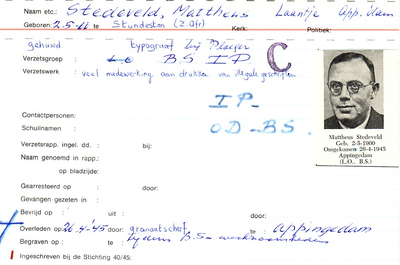 Naam etc.: Stedeveld, Mattheus Laantje App. dam
Geboren: 2-5-11 te Stundeston (Z. Afr) Kerk: Politiek:
gehuwd typograaf bij
Verzetsgroep : L.O. B.S. IP C
Verzetswerk : veel medewerking aan drukken van illegale geschriften
IP-
Contactpersonen:
Schuilnamen : OD-BS.
Mattheus Stedeveld
Geb. 2-5-1900
Omgekomen 26-4-1945
Appingedam
(L.O., B.S.)
Verzetsrapp. ingel. dd. : bij:
Naam genoemd in rapp.:
op bladzijde:
Gearresteerd op : door:
Gevangen gezeten in :
Bevrijd op : uit : door:
Overleden op: 26.4.'45 door: granaatscherf te : Appingedam
Begraven op : te : tijdens B.S. werkzaamheden
Ingeschreven bij de Stichting 40/45: